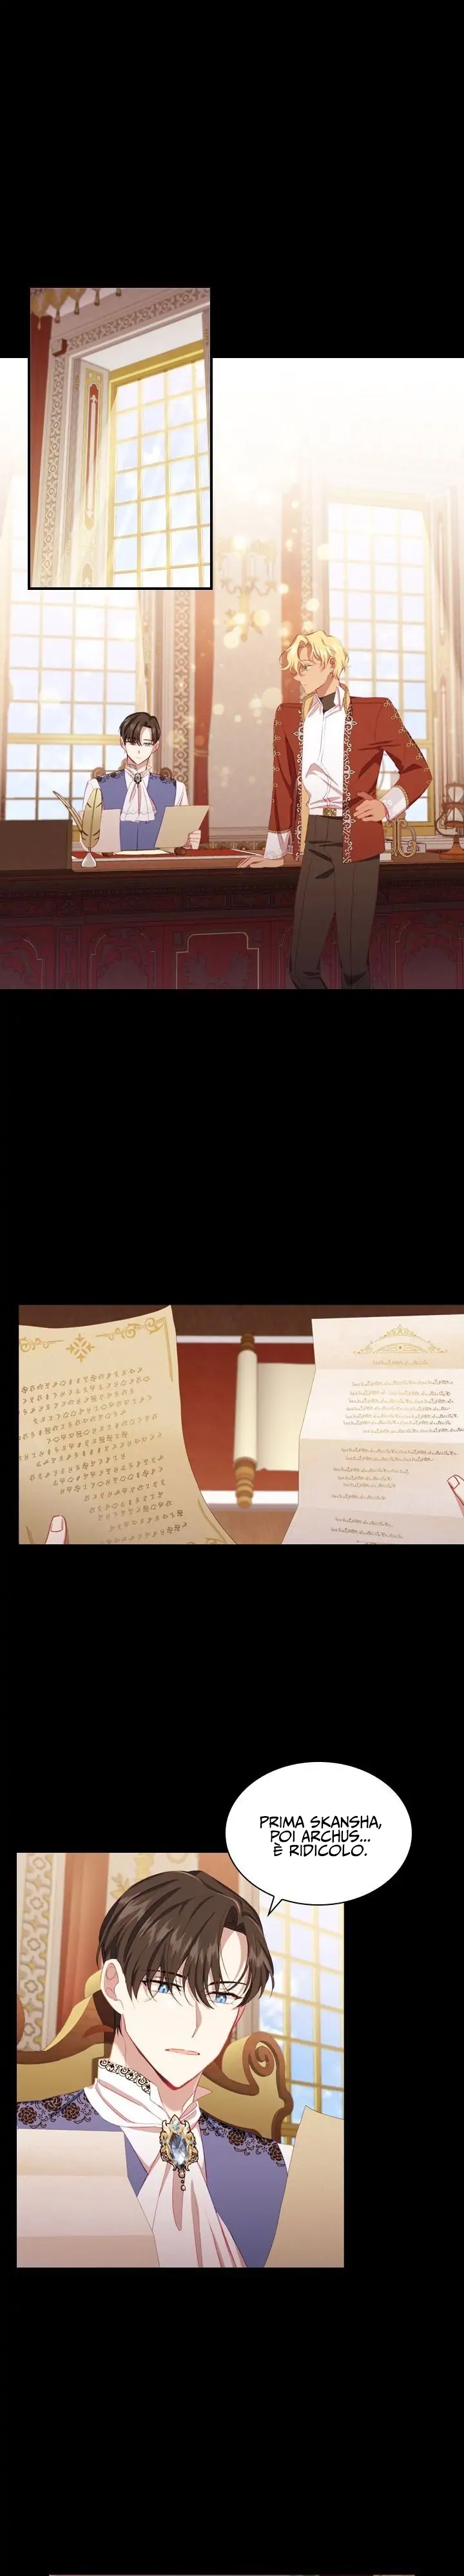 PRIMA SKANSHA,
POI ARCHUS...
È RIDICOLO.